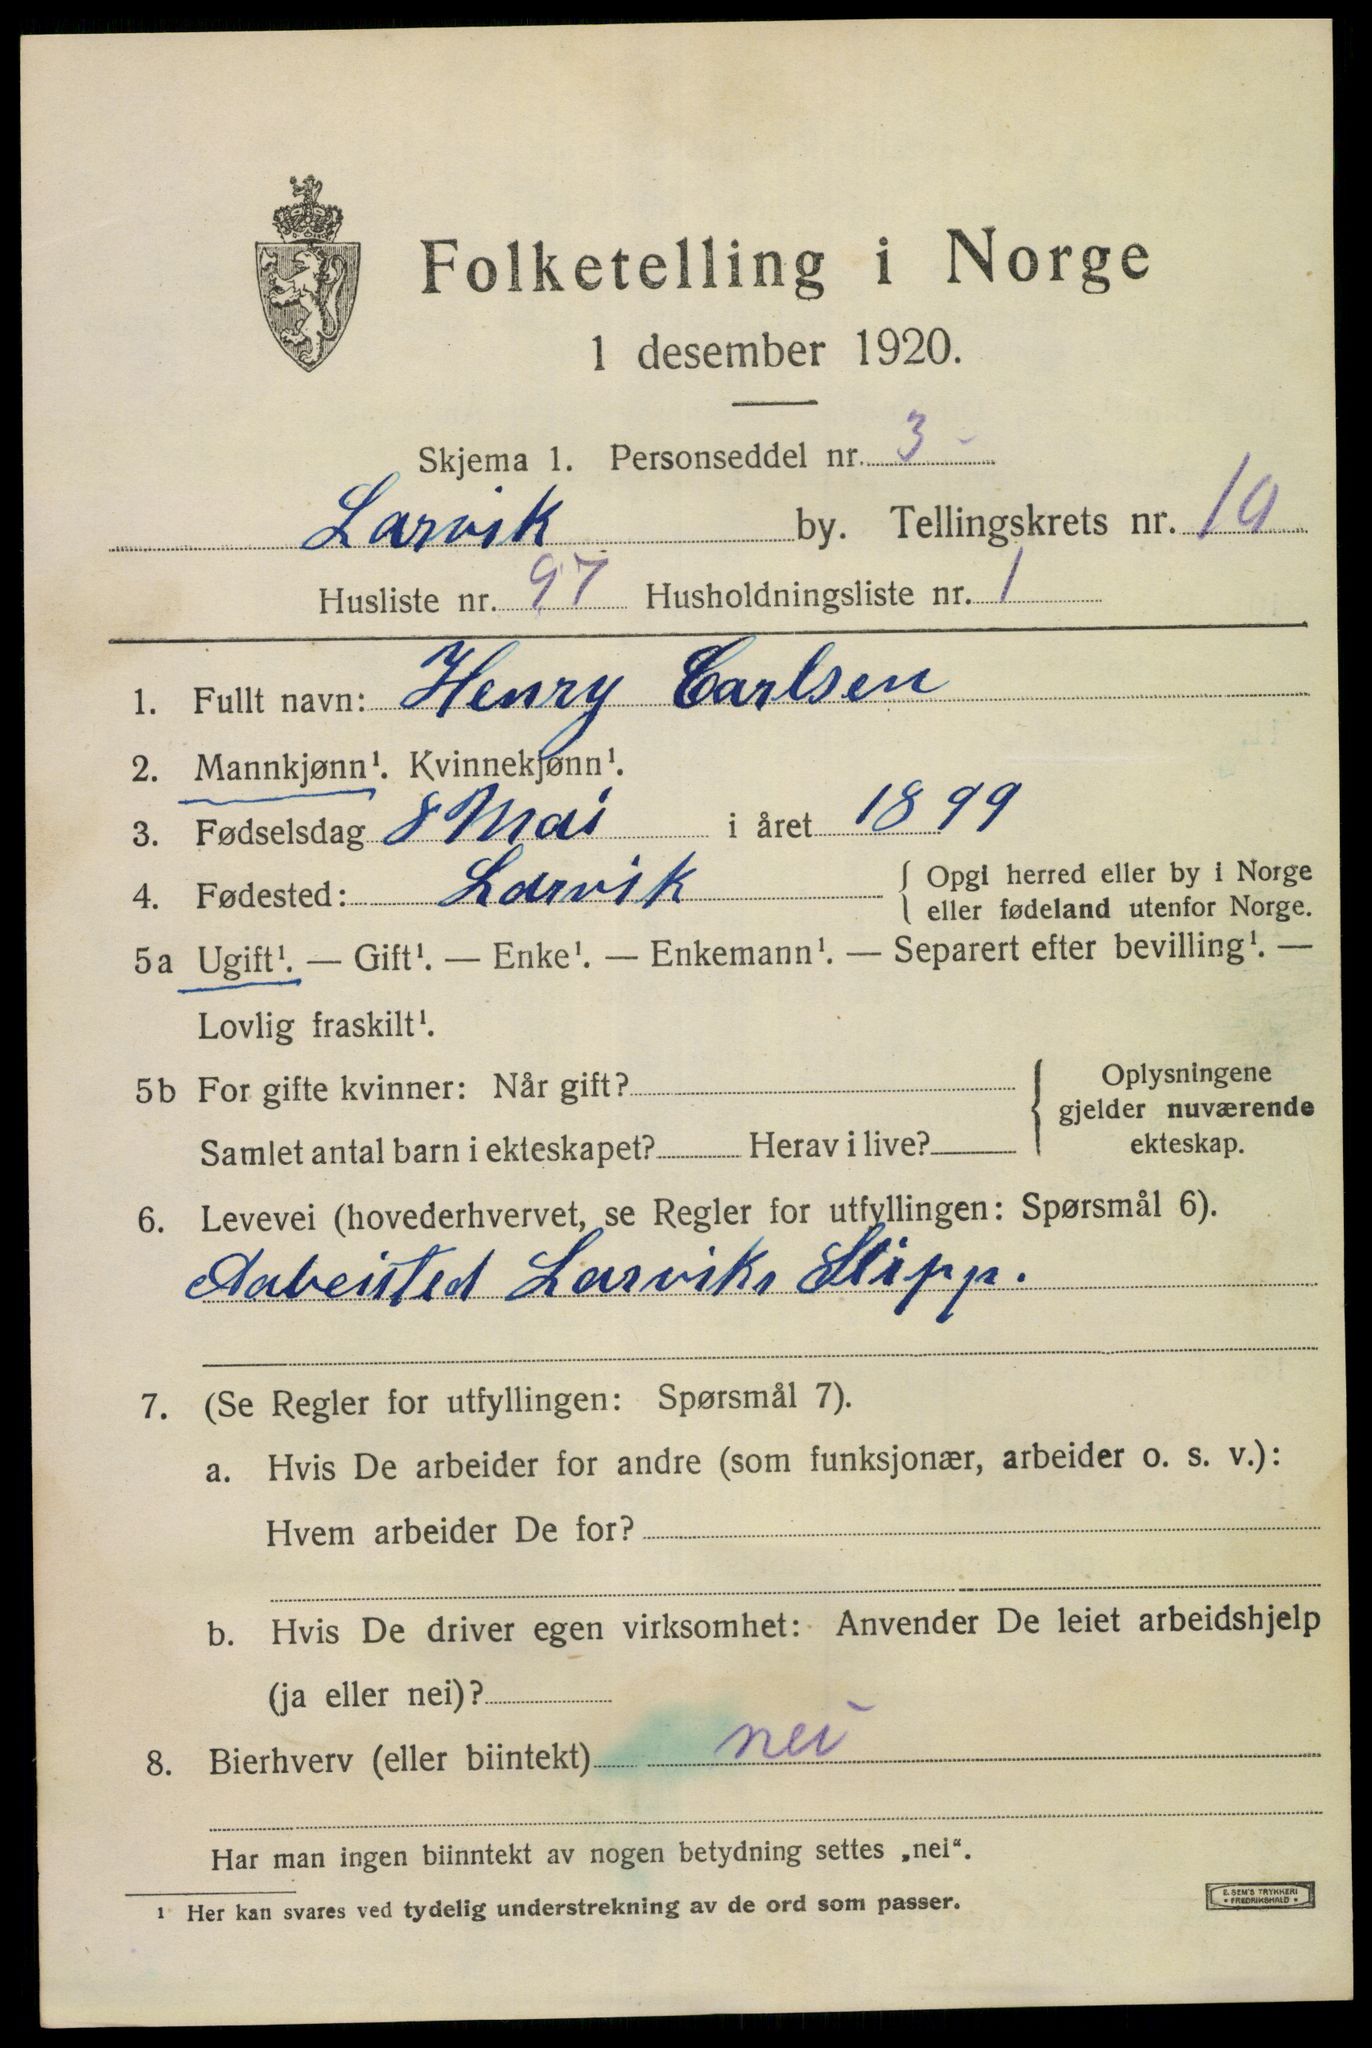 Folketelling i Norge
1 desember 1920.
Skjema 1. Personseddel nr. 3
Larvik by. Tellingskrets nr. 10
Husliste nr. 97 Husholdningsliste nr. 1
1. Fullt navn: Henry Carlsen
2. Mannkjønn¹. Kvinnekjønn¹.
3. Fødselsdag 8 Mai i året 1899
4. Fødested: Larvik { Opgi herred eller by i Norge
eller fødeland utenfor Norge.
5a Ugift¹. — Gift¹. — Enke¹. — Enkemann¹. — Separert efter bevilling¹. —
Lovlig fraskilt¹.
5b For gifte kvinner: Når gift? { Oplysningene
gjelder nuværende
Samlet antal barn i ekteskapet? Herav i live? ekteskap.
6. Levevei (hovederhvervet, se Regler for utfyllingen: Spørsmål 6).
Aabeisted Larviks Slipp.
7. (Se Regler for utfyllingen: Spørsmål 7).
a. Hvis De arbeider for andre (som funksjonær, arbeider o. s. v.):
Hvem arbeider De for?
b. Hvis De driver egen virksomhet: Anvender De leiet arbeidshjelp
(ja eller nei)?
8. Bierhverv (eller biintekt) nei
Har man ingen biinntekt av nogen betydning settes „nei“.
¹ Her kan svares ved tydelig understrekning av de ord som passer.
E. SEM'S TRYKKERI
• FREDRIKSHALD •